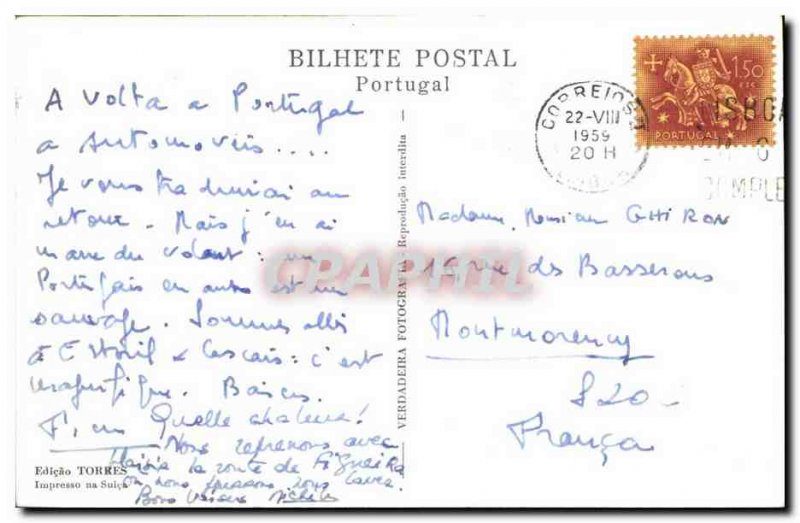 BILHETE POSTAL
Portugal
A volta a Portugal
a automoveis....
Je vous traduirai au
retour. Mais j'en ai
marre du volant : un
Portugais en auto est un
sauvage. Sommes allés
à Estoril & Cascais : c'est
magnifique. Baisers.
Quelle chaleur!
Nous reprenons avec
la route de Figueira
où nous pensons nous laver.
Bons baisers Michele
Edição TORRES
Impresso na Suiça
VERDADEIRA FOTOGRAFIA Reprodução interdita
CORREIOS
22-VIII
1959
20 H
LISBOA
1$50
PORTUGAL
Madame, Monsieur GHIRON
rue des Basserons
Montmorency
S&O
França
CPAPHIL